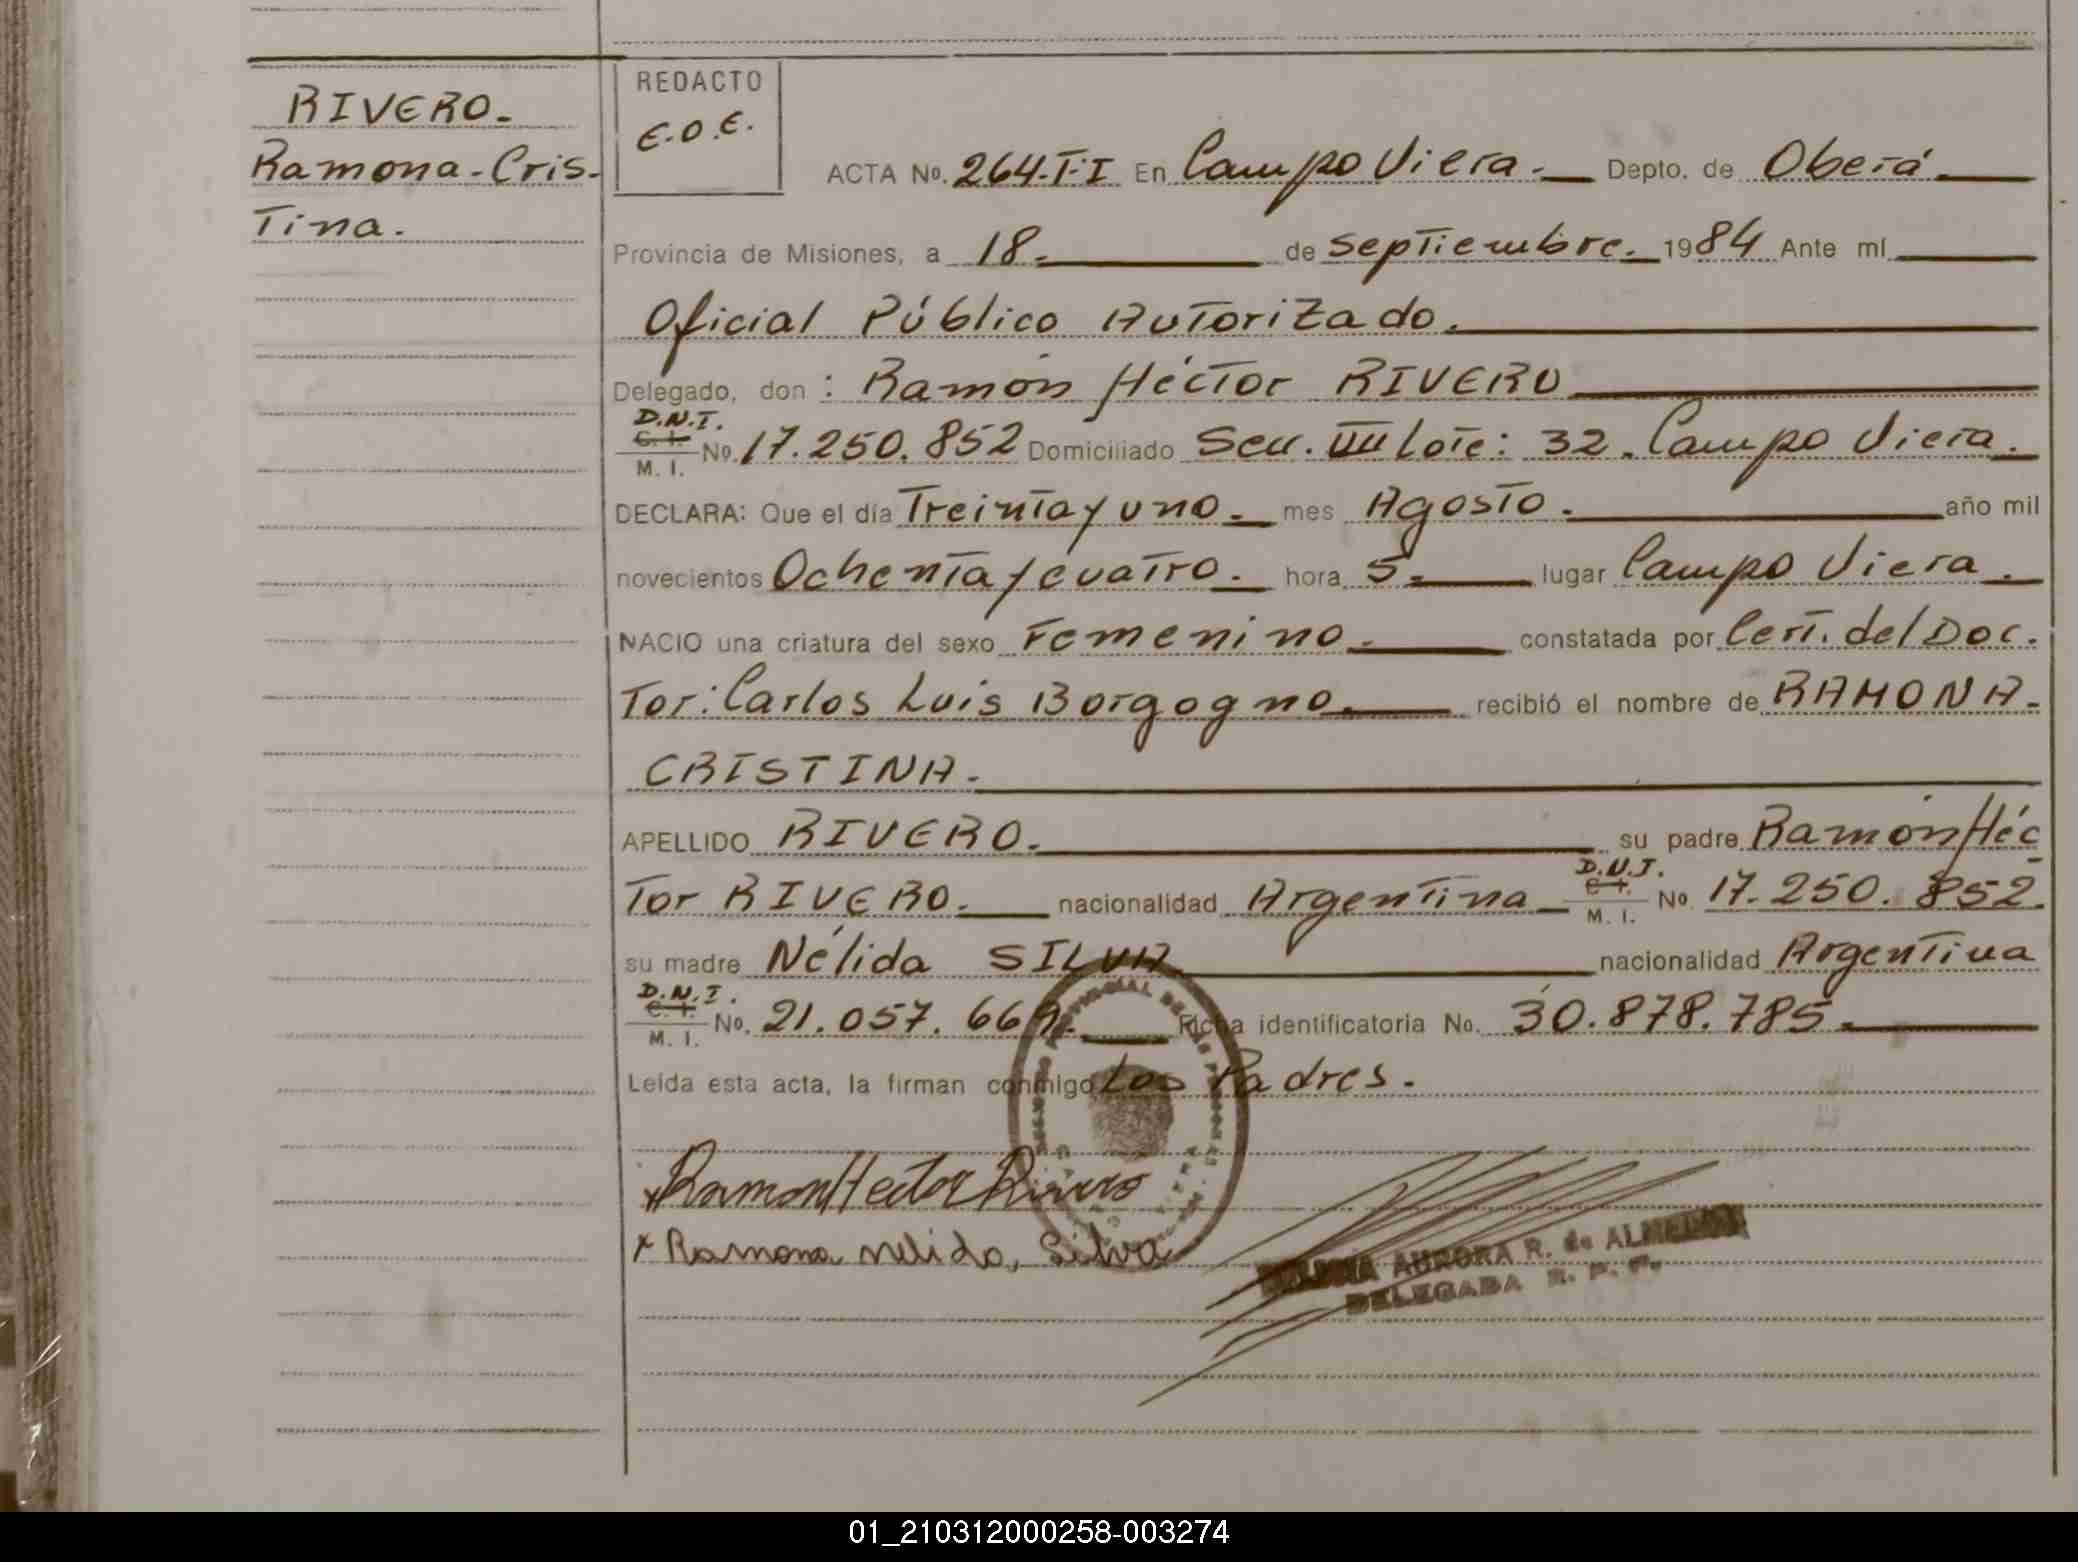 RIVERO.
Ramona-Cris-
Tina.
REDACTO
E.O.E.
ACTA No. 264-T·I En Campo Viera. Depto. de Oberá.
Provincia de Misiones, a 18. de Septiembre. 1984 Ante mí
Oficial Público AUTorizado.
Delegado, don : Ramón Héctor RIVERO
D.N.I.
C. I.
M. I. No. 17.250.852 Domiciliado Sec. VIII Lote: 32. Campo Viera.
DECLARA: Que el día Treinta y uno. mes Agosto. año mil
novecientos Ochenta y cuatro. hora 5. lugar Campo Viera.
NACIO una criatura del sexo Femenino. constatada por Cert. del Doc.
Tor: Carlos Luis Borgogno. recibió el nombre de RAMONA.
CRISTINA.
APELLIDO RIVERO. su padre Ramón Héc
Tor RIVERO. nacionalidad Argentina D.N.I. C. I. M. I. No. 17.250.852.
su madre Nélida SILVA nacionalidad Argentina
D.N.I.
C. I.
M. I. No. 21.057.669. Ficha identificatoria No. 30.878.785.
Leída esta acta, la firman conmigo Los Padres.
x Ramon Hector Rivero
x Ramona nelida, Silva
AURORA R. de ALMEIDA
DELEGADA R. P. P.
01_210312000258-003274